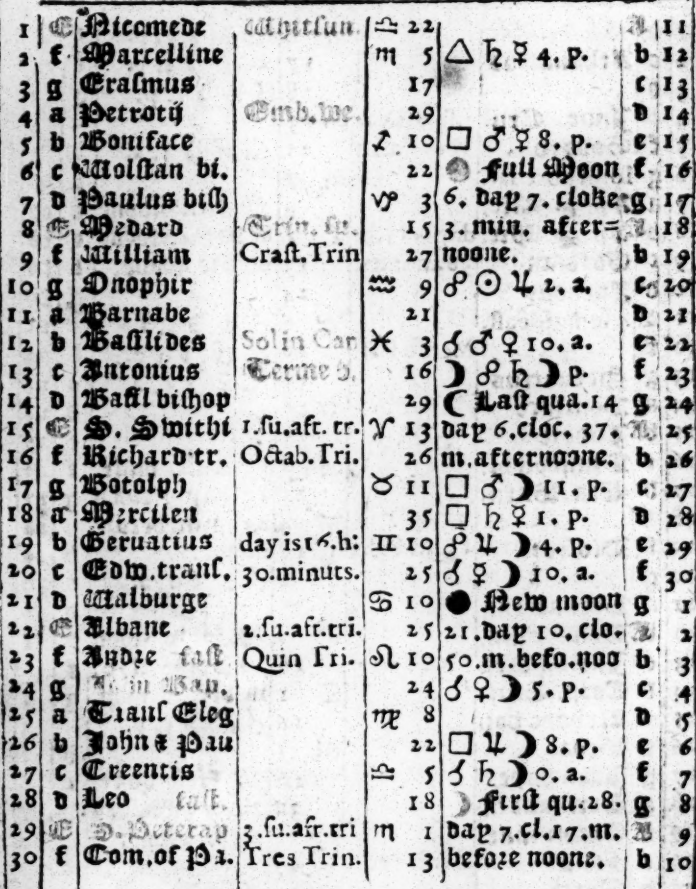 1 E Nicomede Whitsun. ♎ 22 A 11
2 f Marcelline ♏ 5 △ ♄ ☿ 4. p. b 12
3 g Erasmus 17 c 13
4 a Petrocij 29 d 14
5 b Boniface ♐ 10 □ ♂ ☿ 8. p. e 15
6 c Wolstan bi. 22 Full Moon f 16
7 d Paulus bish ♑ 3 6. day 7. cloke g 17
8 E Medard Trin. su. 15 3. min. after= A 18
9 f William Crast. Trin 27 noone. b 19
10 g Onophir ♒ 9 ☍ ☉ ♃ 2. a. c 20
11 a Barnabe 21 d 21
12 b Basilides Sol in Can ♓ 3 ☌ ♂ ♀ 10. a. e 22
13 c Antonius Terme b. 16 ☽ ☍ ♄ ☽ p. f 23
14 d Basil bishop 29 ☾ Last qua. 14 g 24
15 E S. Swithi 1. su. aft. tr. ♈ 13 day 6. cloc. 37. A 25
16 f Richard tr. Octab. Tri. 26 m. afternoone. b 26
17 g Botolph ♉ 11 □ ♂ ☽ 11. p. c 27
18 a Mercilen 35 □ ♄ ☿ 1. p. d 28
19 b Geruatius day is 16. h: ♊ 10 ☍ ♃ ☽ 4. p. e 29
20 c Edw. trans. 30. minuts. 25 ☌ ☿ ☽ 10. a. f 30
21 d Walburge ♋ 10 ● New moon g 1
22 E Albane 2. su. aft. tri. 25 21. day 10. clo. A 2
23 f Andre fast Quin Tri. ♌ 10 50. m. befo. noo b 3
24 g Iohn Bap. 24 ☌ ♀ ☽ 5. p. c 4
25 a Transl Eleg ♍ 8 d 5
26 b John & Pau 22 □ ♃ ☽ 8. p. e 6
27 c Creentis ♎ 5 ☌ ♄ ☽ 0. a. f 7
28 d Leo fast. 18 ☽ First qu. 28. g 8
29 E S. Peter ap 3. su. aft. tri ♏ 1 day 7. cl. 17. m. A 9
30 f Com. of Pa. Tres Trin. 13 before noone. b 10